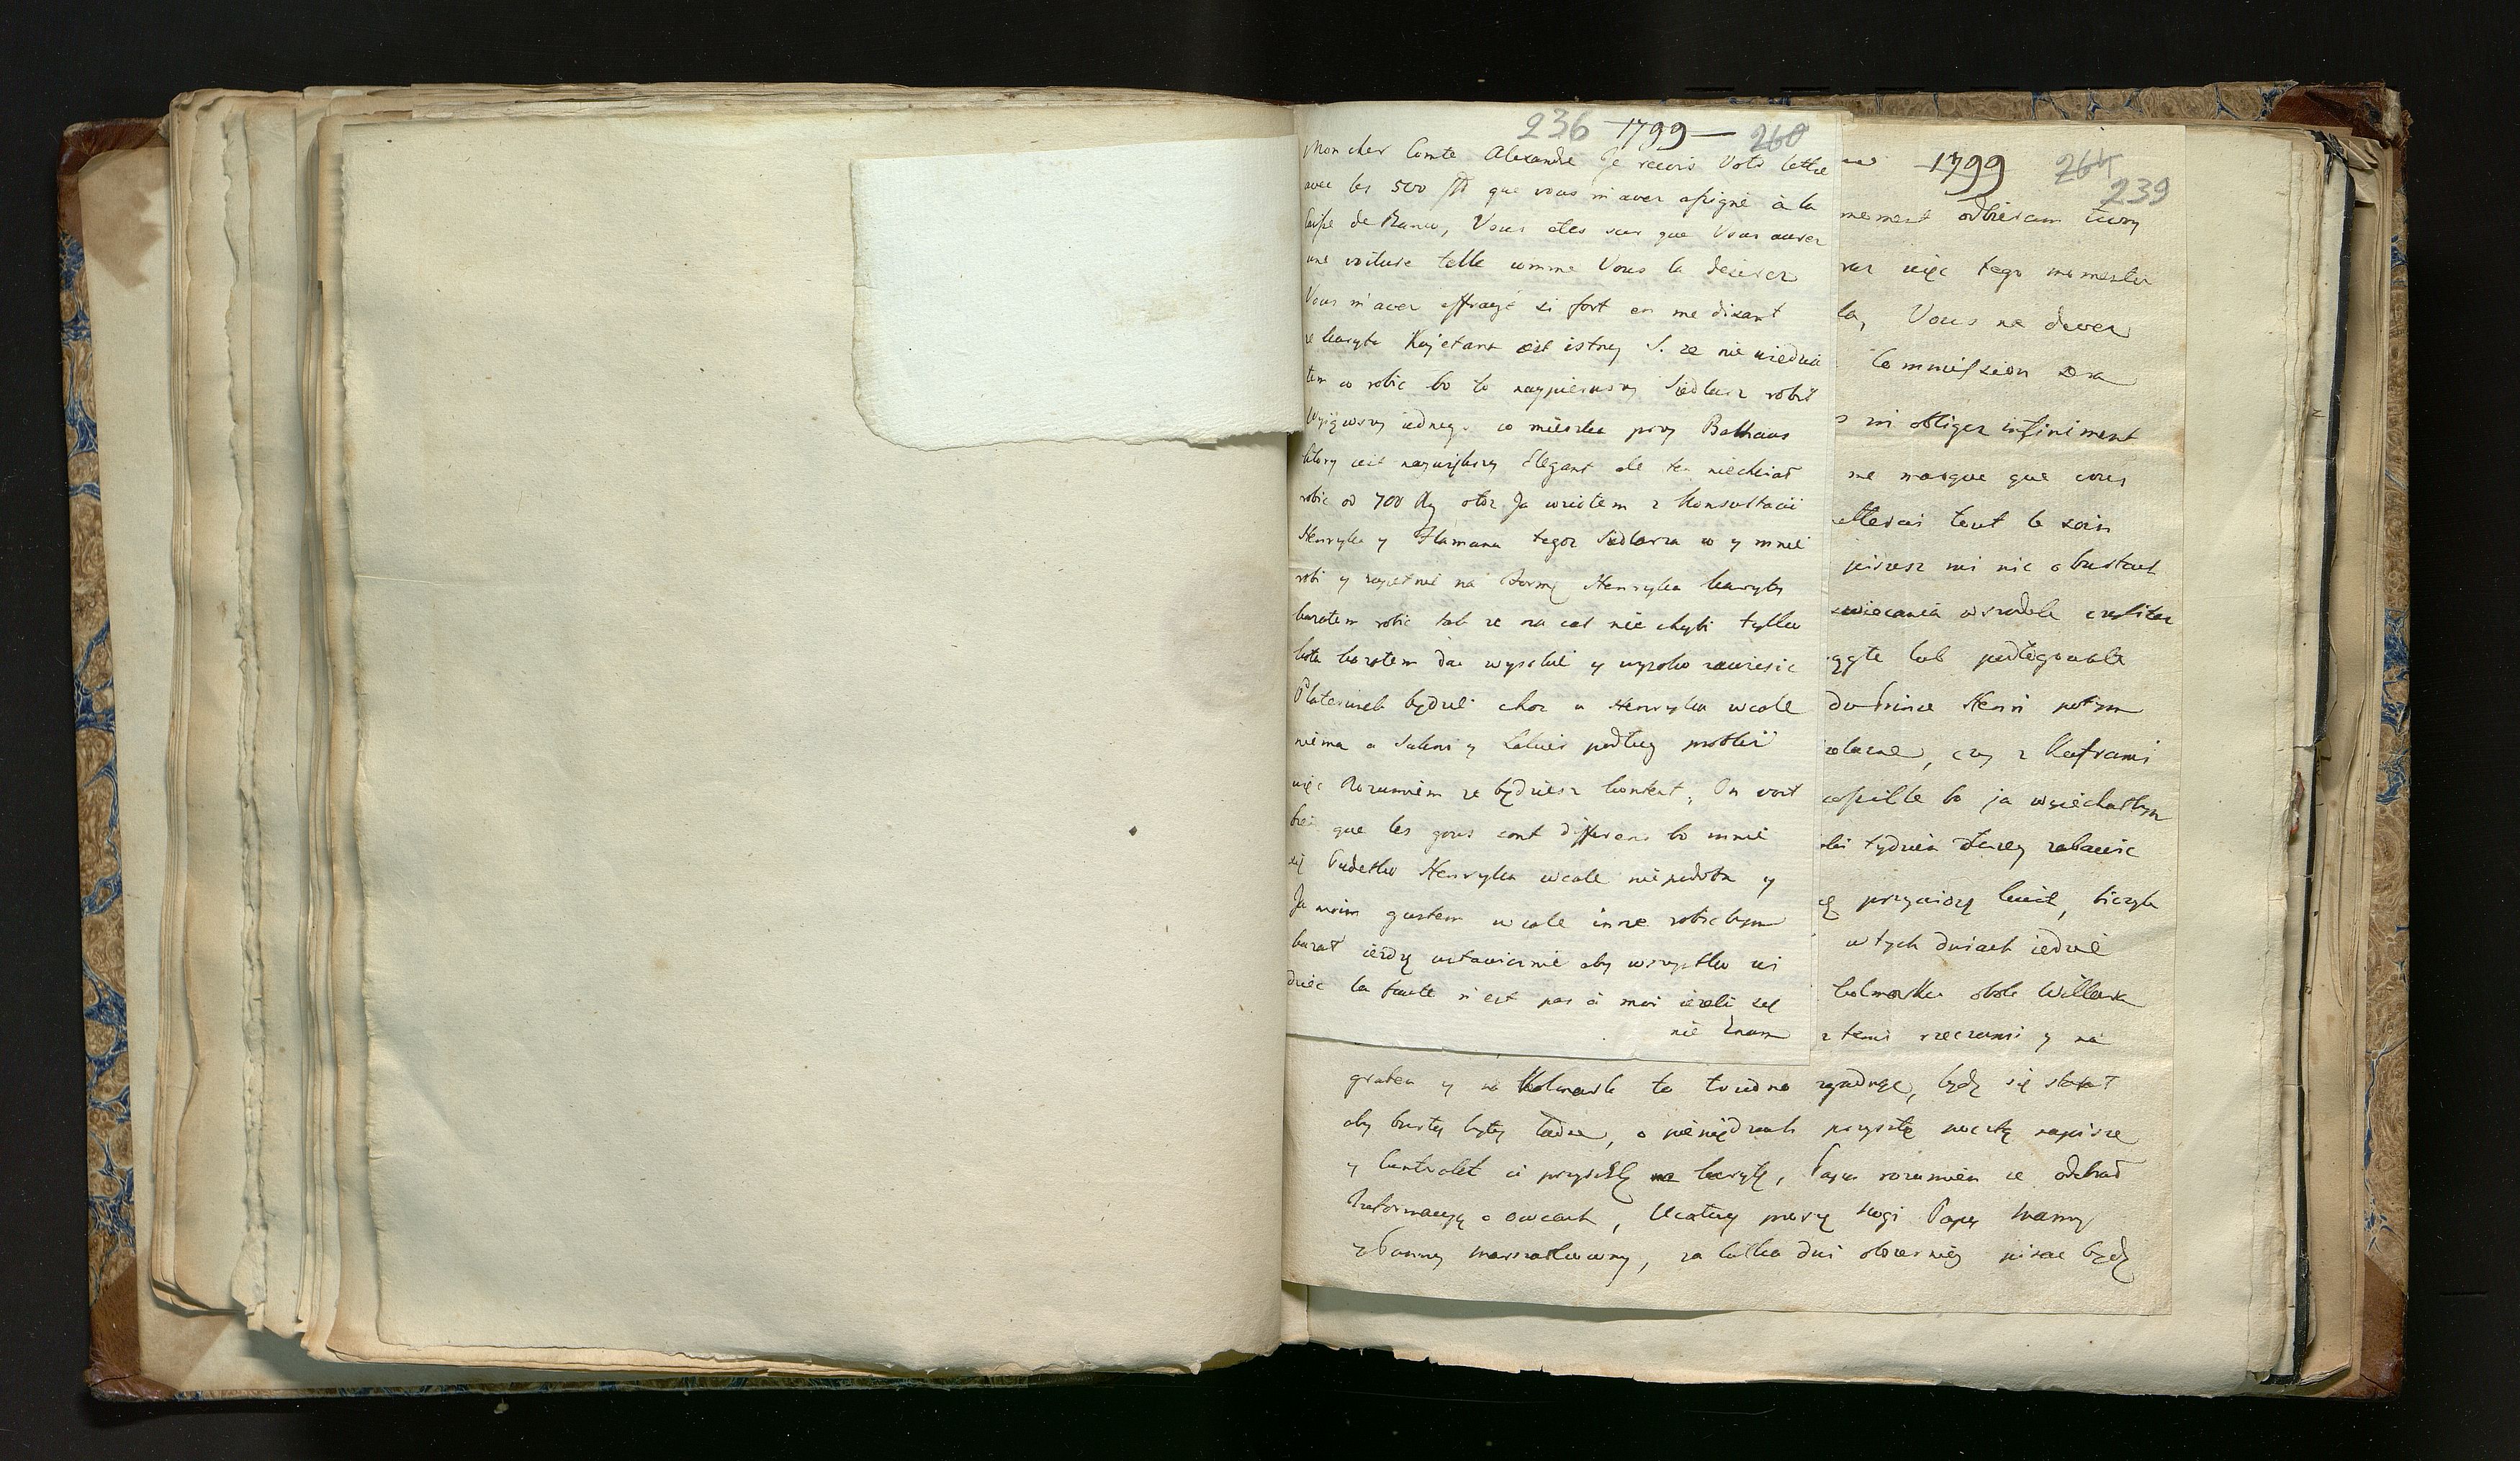 236 1799 — 260
Mon cher Comte Alexandre Je recois Votr lettre
avec les 500 que vous m'avez assigné à la
Caisse de Banco, Vous etes sur que Vous aurez
une voiture telle comme Vous la desirez
Vous m'avez effrayé si fort en me disant
ze karyta Kajetana est istny S. ze nie wiedzia
łem co robic bo to naypierwszy Siodlarz robił
Wyiąwszy iednego co mieszka przy Balhaus
ktory iest naywiększy Elegant ale ten niechciał
robic od 700 otoz Ja wziołem z Konsultacii
Henryka y Flamana tegoz Siodlarza co y mnie
robi y zupełnie na Formę Henryka karytę
kazałem robic tak ze na cal nie chybi tylko
koła kazałem dac wysokie y wysoko zawiesic
Platerirek będzie choc u Henryka wcale
niema a Suknia y Lakier podług probki
więc Rozumiem ze będziesz kontent, On voit
bien que les gous sont differens bo mnie
się Pudełko Henryka wcale nie podoba y
Ja moim gustem wcale inne robic bym
kazał iezdzę ustawicznie aby wszystko wi
dziec la faute n'est pas à moi iezeli się
nie Znam
1799 264
239
moment odbieram twoy
więc tego momentu
la, Vous ne devez
Commission
m'obliger infiniment
me marque que vous
mettrai tout le soin
piszesz mi nic o bustach
zwiecania wszrodek
lub podlegowate
du Prince Henri potym
czy z Kuframi
bo ja wyiechałbym
tydzien dłuzey zabawic
przywiozę
w tych dniach iedzie
kolmarku obok Willers
z temi rzeczami y na
graben y na Kolmark to trudno zgadnąc, będę się starał
aby busty były ładne, o pieniądzach przyszłą pocztą napisze
y Contrakt ci przyszlę na karytę, Papa rozumiem ze odebrał
Informacyę o owcach, Ucałuy proszę nogi Papy Mamy
y Panny marszałkowny, za kilka dni obszerniey pisac będę